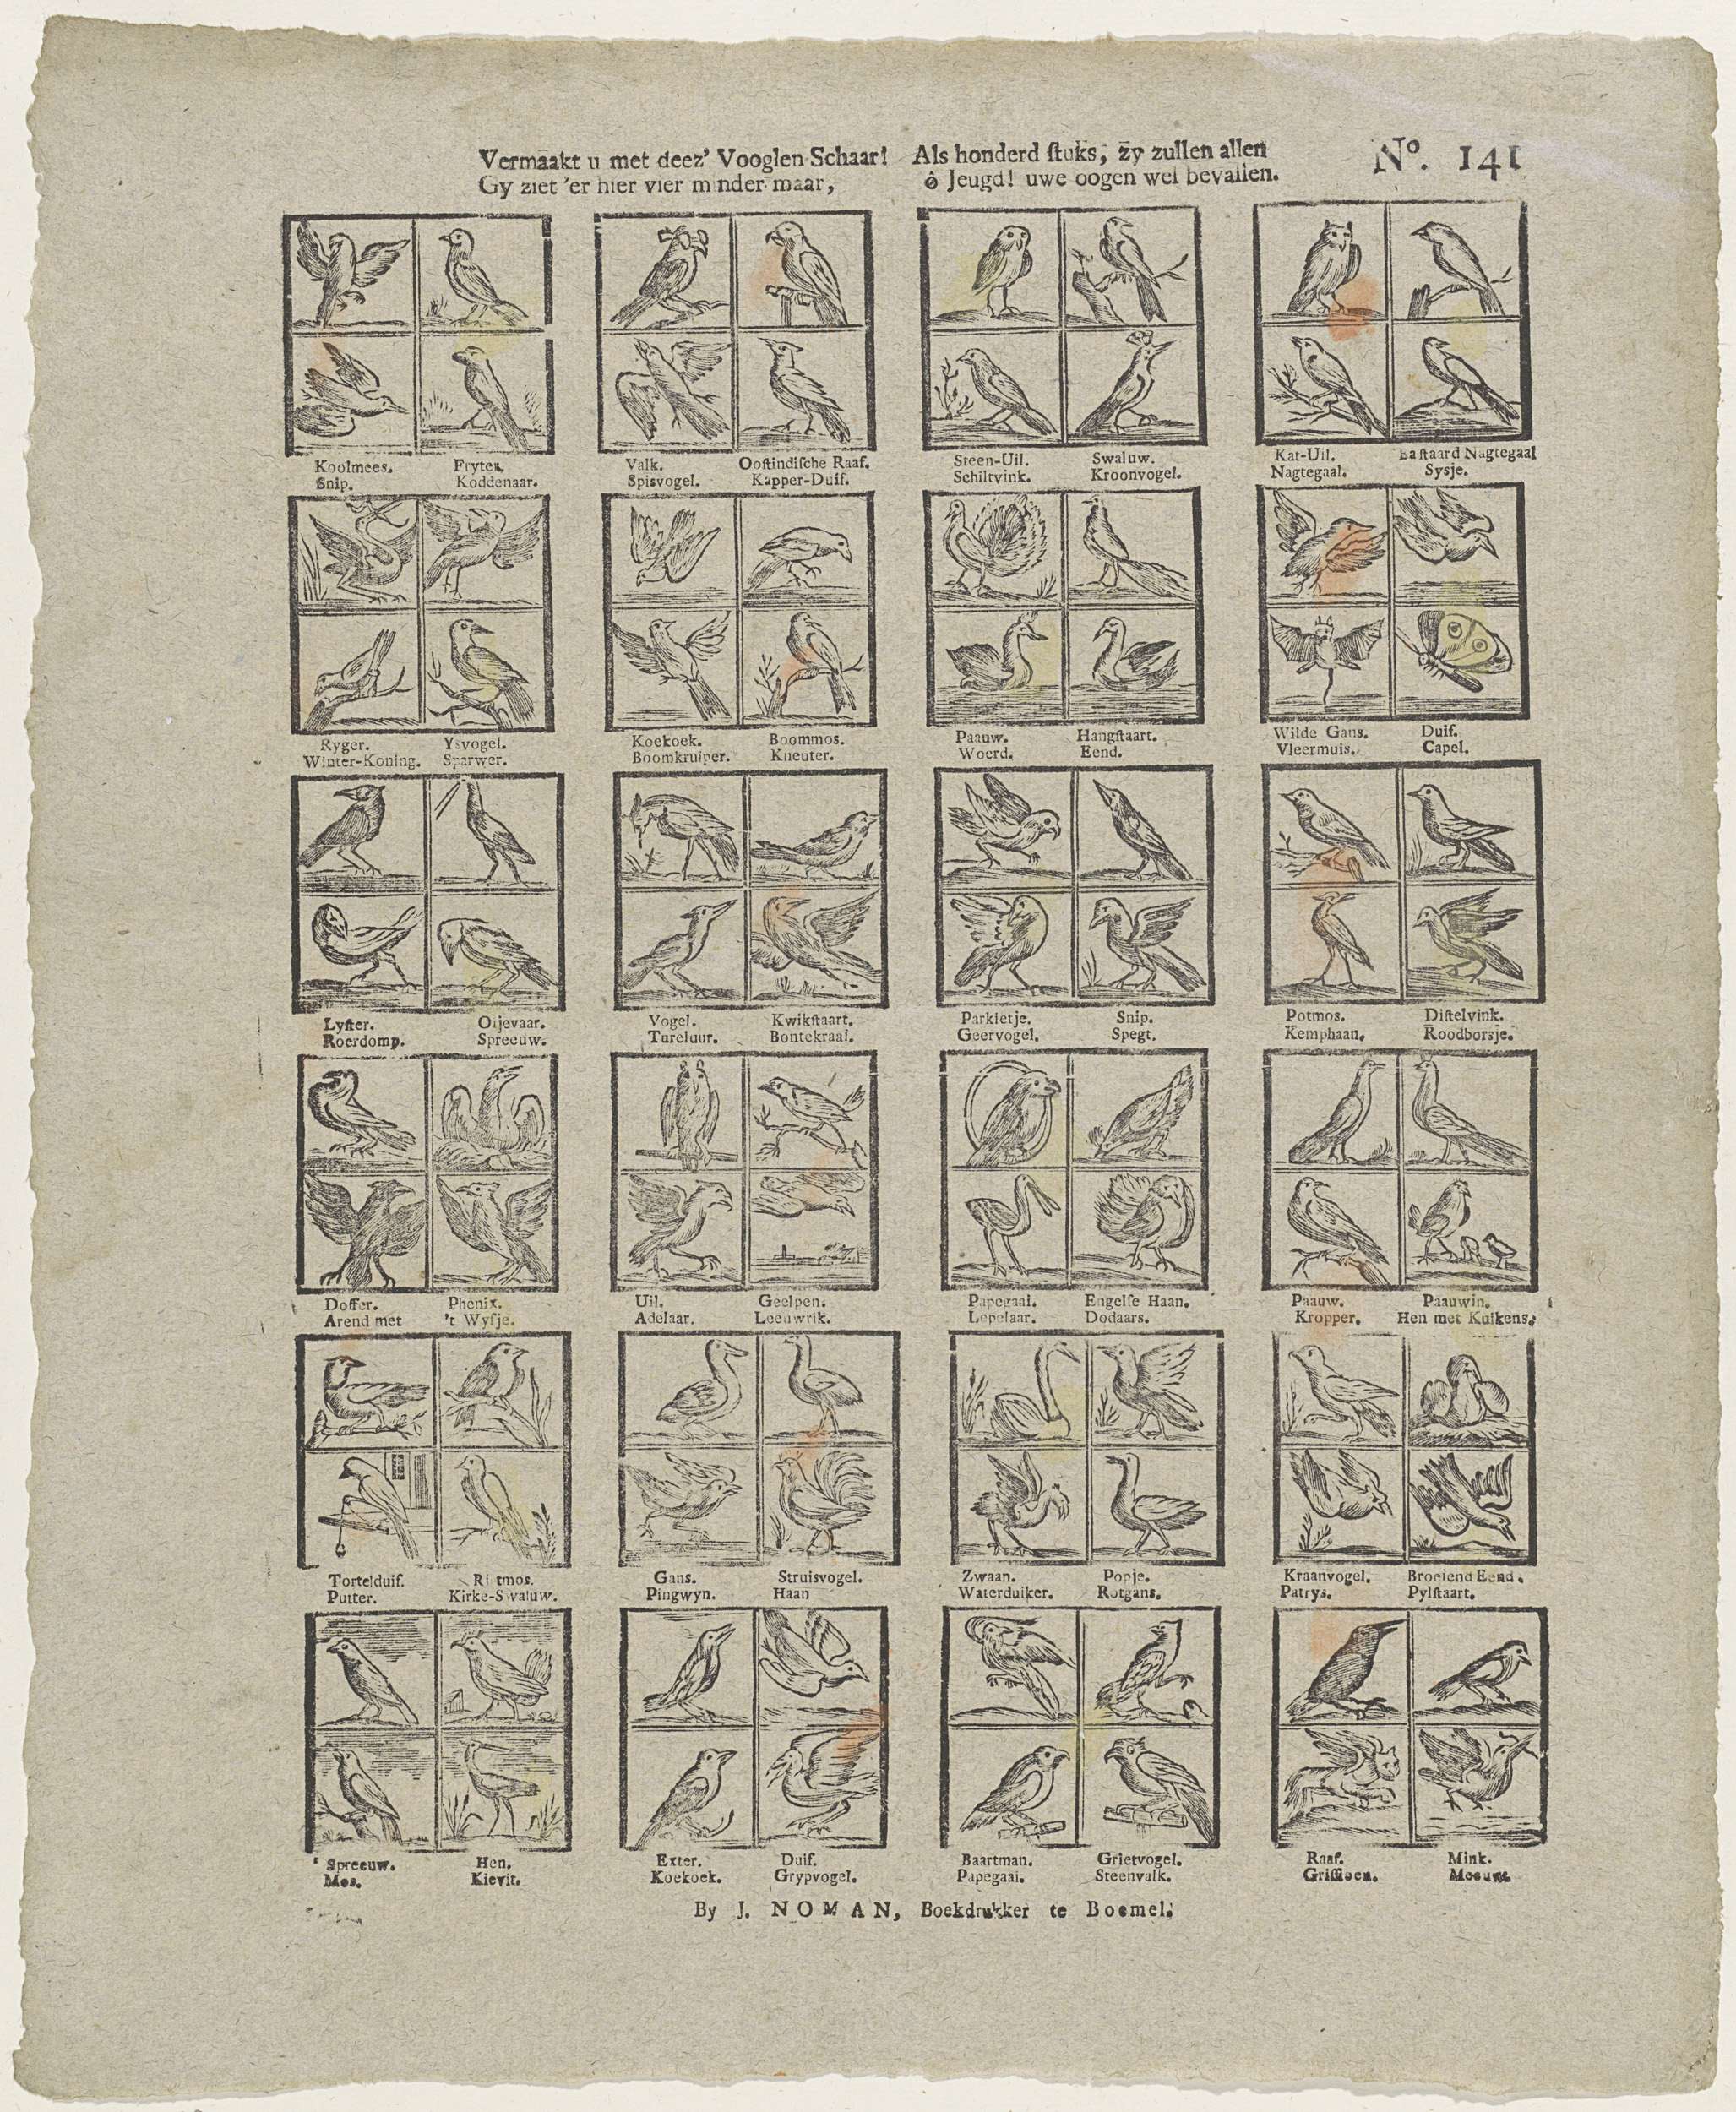 Vermaakt u met deez' Vooglen Schaar! Als honderd ſtuks, zy zullen allen
Gy ziet 'er hier vier minder maar, ô Jeugd! uwe oogen wel bevallen.
No. 141
Koolmees. Fryter. Valk. Ooſtindiſche Raaf. Steen-Uil. Swaluw. Kat-Uil. Baſtaard Nagtegaal
Snip. Koddenaar. Spisvogel. Kapper-Duif. Schiltvink. Kroonvogel. Nagtegaal. Sysje.
Ryger. Ysvogel. Koekoek. Boommos. Paauw. Hangſtaart. Wilde Gans. Duif.
Winter-Koning. Sparwer. Boomkruiper. Kneuter. Woerd. Eend. Vleermuis. Capel.
Lyſter. Oijevaar. Vogel. Kwikſtaart. Parkietje. Snip. Potmos. Diſtelvink.
Roerdomp. Spreeuw. Tureluur. Bontekraai. Geervogel. Spegt. Kemphaan. Roodborsje.
Doffer. Phenix. Uil. Geelpen. Papegaai. Engelſe Haan. Paauw. Paauwin.
Arend met 't Wyfje. Adelaar. Leeuwrik. Lepelaar. Dodaars. Kropper. Hen met Kuikens.
Tortelduif. Rietmos. Gans. Struisvogel. Zwaan. Popje. Kraanvogel. Broeiend Eend.
Putter. Kirke-Swaluw. Pingwyn. Haan Waterduiker. Rotgans. Patrys. Pylſtaart.
Spreeuw. Hen. Exter. Duif. Baartman. Grietvogel. Raaf. Mink.
Mos. Kievit. Koekoek. Grypvogel. Papegaai. Steenvalk. Griffioen. Meeuw.
By J. NOMAN, Boekdrukker te Bommel.